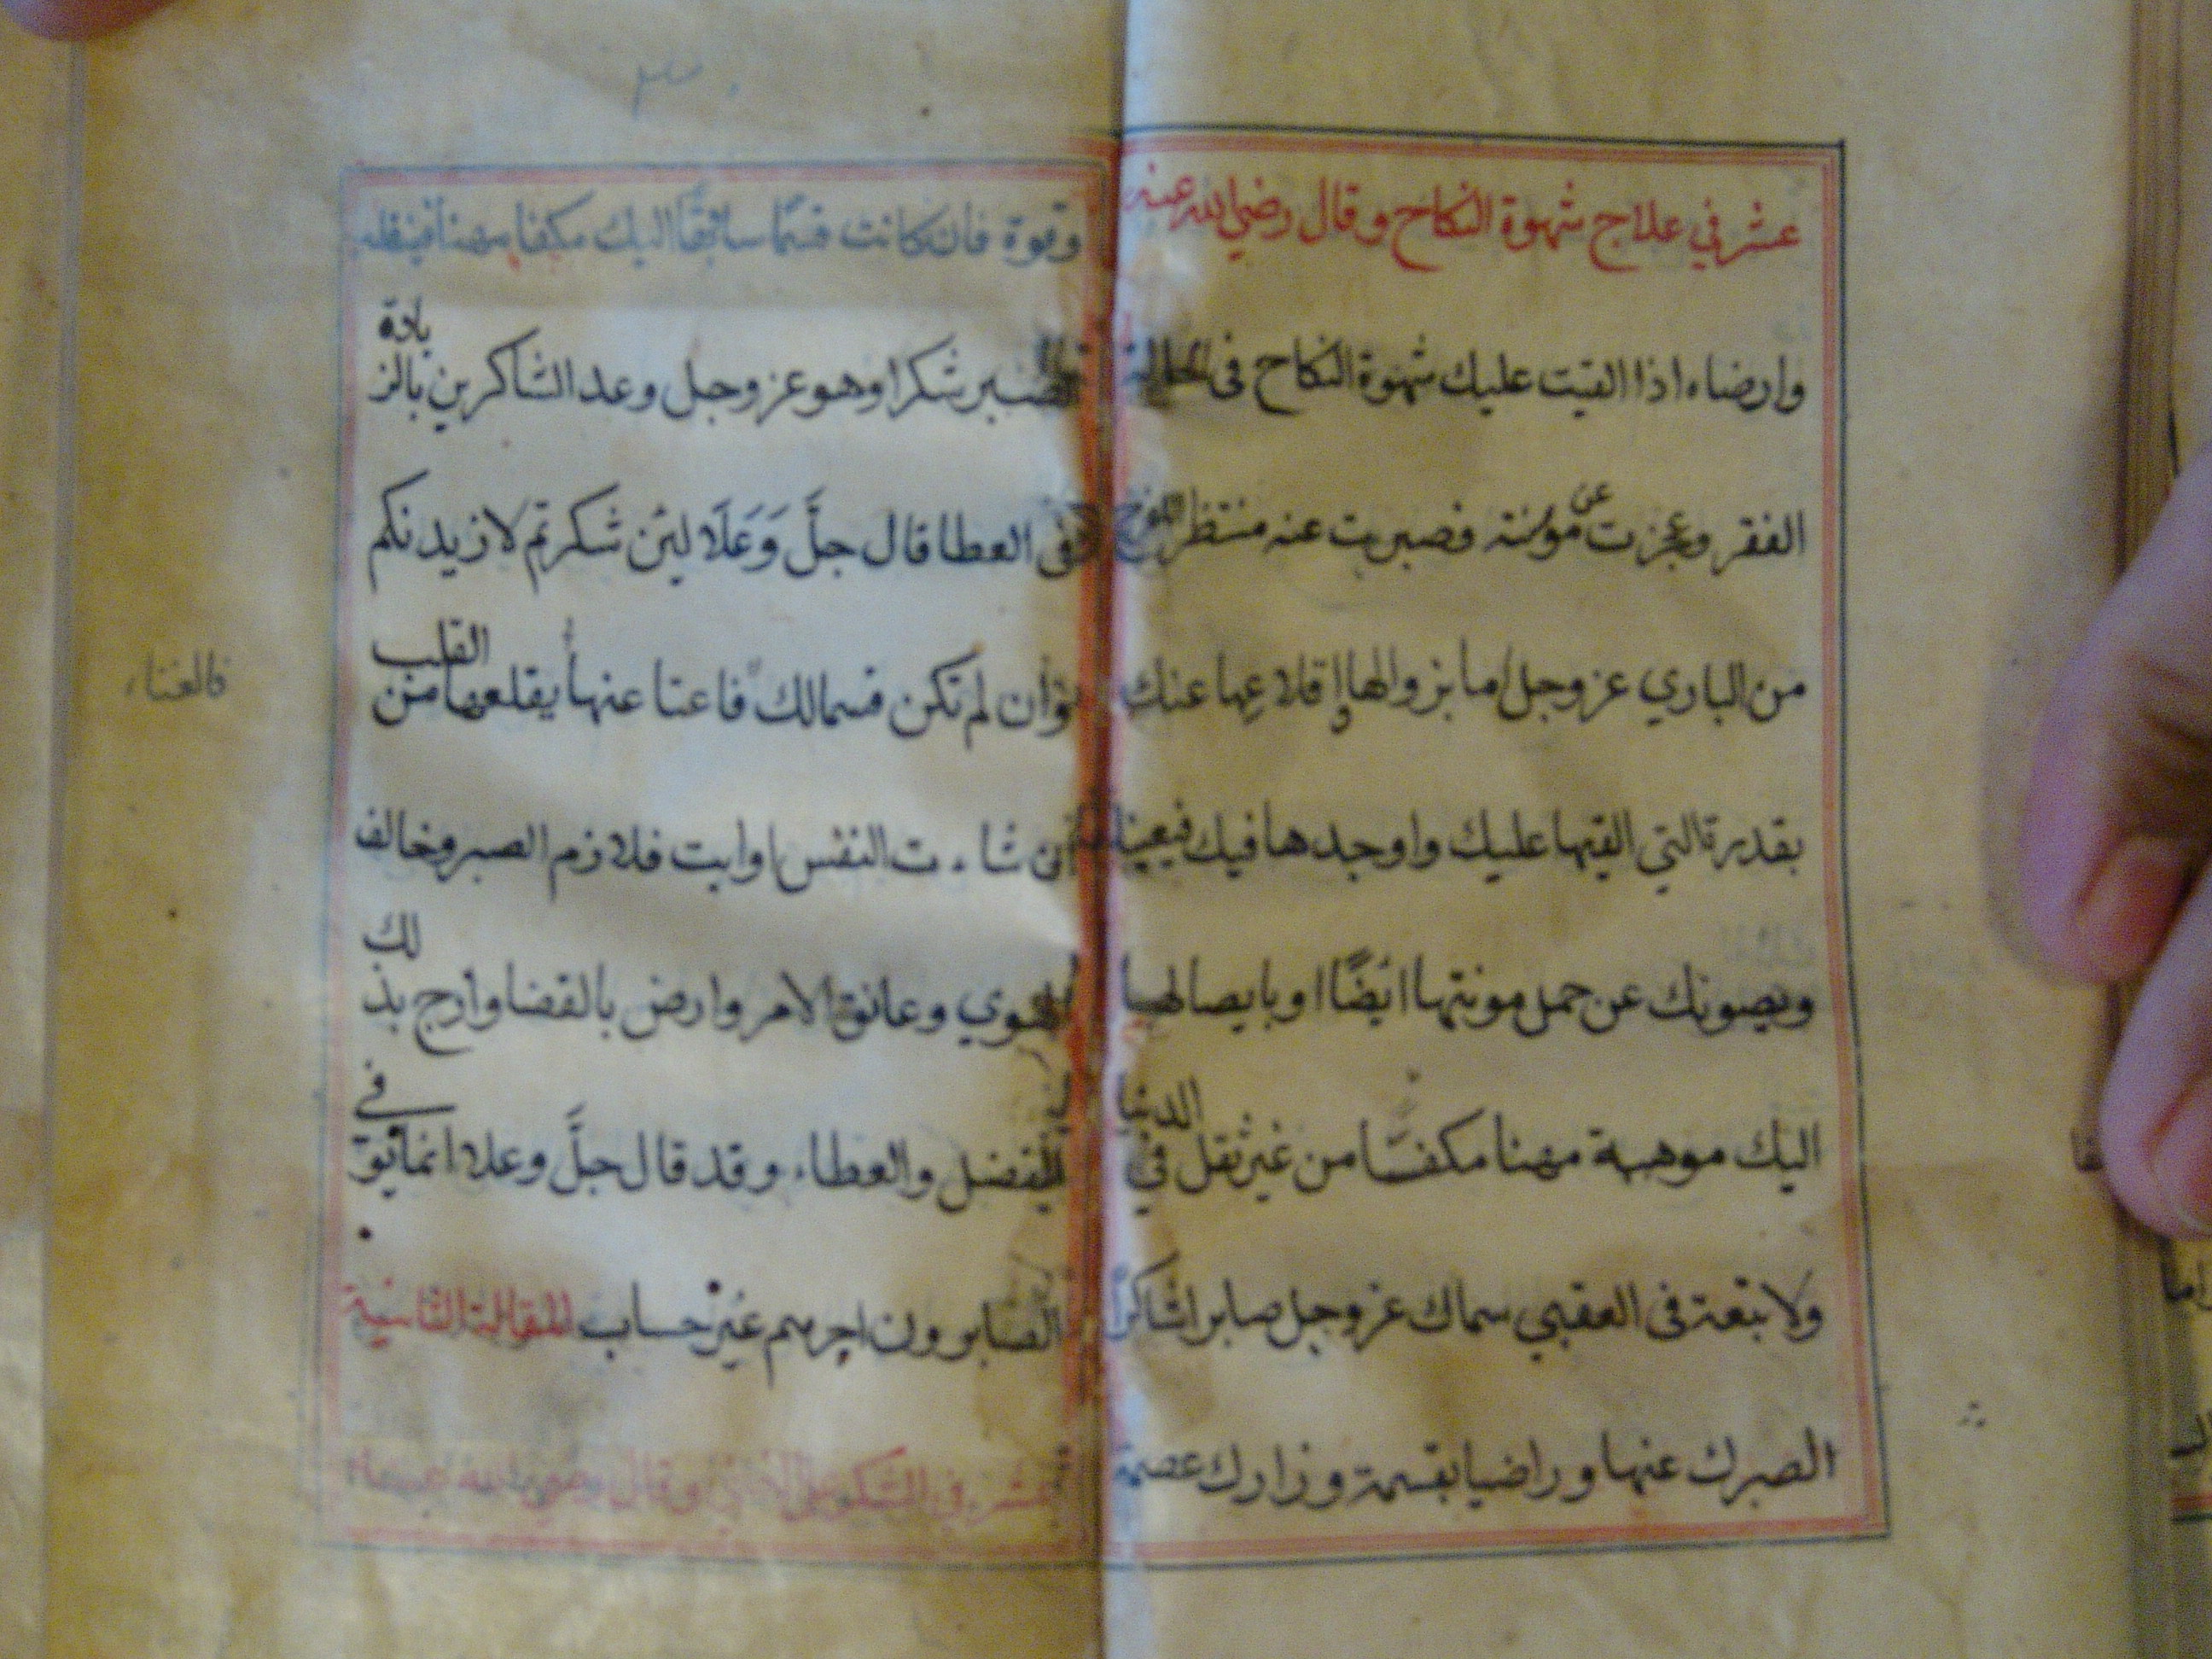 عشر في علاج شهوة النكاح وقال رضي الله عنه
وارضاه اذا القيت عليك شهوة النكاح فى
الفقر وعجزت عن مونته فصبرت عنه منتظر الفرج
من الباري عز وجل اما بزوالها إقلاعها عنك
بقدرة التي القيها عليك واوجدها فيك فيعينك
ويصونك عن حمل مونتها ايضًا او بايصالها
اليك موهبة مهنا مكفيّا من غير ثقل في الدنيا
ولا تبعة فى العقبي سماك عز وجل صابرا شاكرًا
الصبرك عنها وراضيا بقسمة وزارك عصمة
٣٠
وقوة فان كانت قسمًا سائقًا اليك مكفيا مهنا فينقلب
الصبر شكرا وهو عز وجل وعد الشاكرين بالزيادة
فى العطا قال جلَّ وَعَلَا ليئن شكرتم لازيدنكم
وان لم تكن قسما لك فاعنا عنها يقلعها من القلب
فالغناء
ان شاءت النفس او ابت فلازم الصبر وخالف
الهوي وعانق الامر وارض بالقضا وارج بذلك
الفضل والعطاء وقد قال جلَّ وعلا انما يوفي
الصابرون اجرهم غير حساب المقالة الثانية
عشر في وقال رضي الله عنه